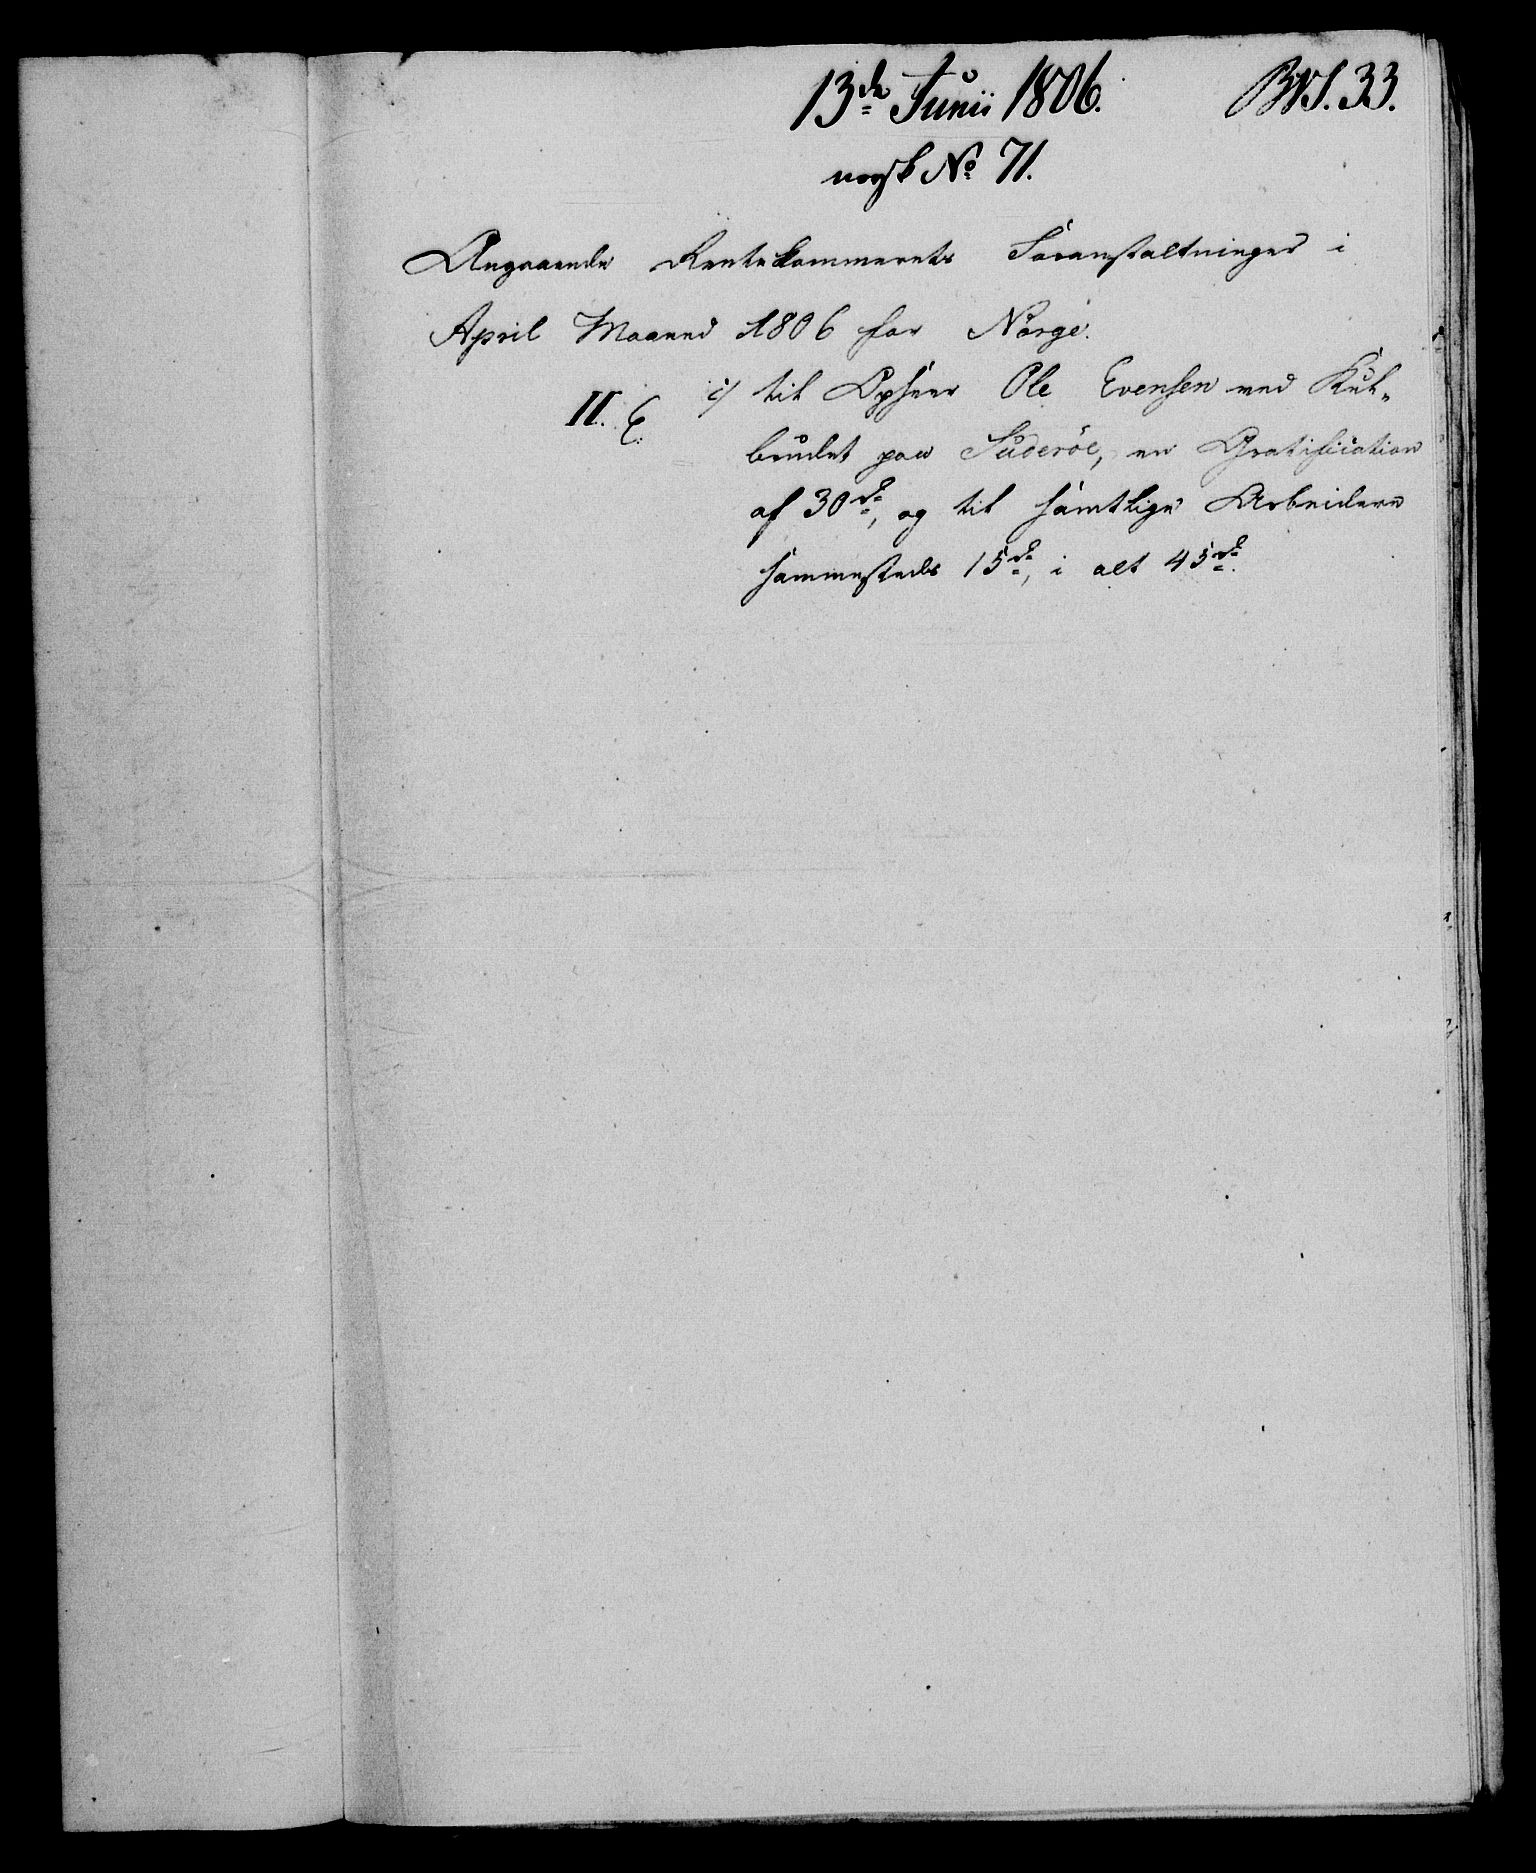 13de Junii 1806. BNS. 33.
norsk No 71.
Angaaende Rentekammerets Foranstaltninger i
April Maaned 1806 for Norge.
II. C. i) til Opseer Ole Evensen ved Kul-
brudet paa Suderöe, en Gratification
af 30 rd, og til samtlige Arbeidere
sammesteds 15 rd, i alt 45 rd.